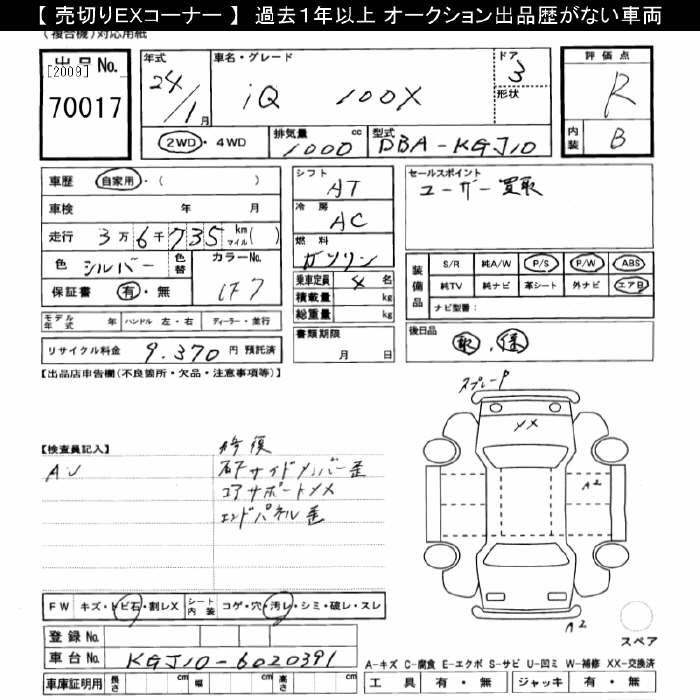 【 売切りEXコーナー 】 過去１年以上 オークション出品歴がない車両
(複合機)対応用紙
出品No.
[2009]
70017
年式
24/1月
車名・グレード
iQ 100X
ドア
3
形状
評価点
R
内装 B
2WD・4WD
排気量 cc
1000
型式
DBA-KGJ10
車歴 自家用・( )
車検 年 月
走行 3万6千735 km マイル( )
色 シルバー
色替
カラーNo.
1F7
保証書 有・無
シフト
AT
冷房
AC
燃料
ガソリン
乗車定員 4 名
積載量 kg
総重量 kg
書類期限
月 日
セールスポイント
ユーザー買取
装備品
S/R 純A/W P/S P/W ABS
純TV 純ナビ 革シート 外ナビ エアB
ナビ型番：
後日品
取.保
モデル年式 年 ハンドル 左・右 ディーラー・並行
リサイクル料金 9.370 円 預託済
【出品店申告欄(不良箇所・欠品・注意事項等)】
スプレーP
XX
A2
A2
【検査員記入】
AU
修復
右Fサイドメンバー歪
コアサポートXX
エンドパネル歪
FW キズ・トビ石・割レX
シート内装 コゲ・穴・汚レ・シミ・破レ・スレ
登録 No.
車台 No. KGJ10-6020391
車庫証明用 長さ cm 幅 cm 高さ cm
スペア
A-キズ C-腐食 E-エクボ S-サビ U-凹ミ W-補修 XX-交換済
工具 有・無 ジャッキ 有・無